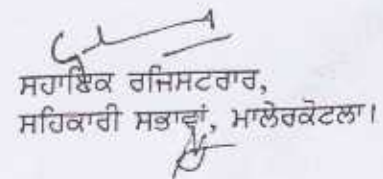 ਸਹਾਇਕ ਰਜਿਸਟਰਾਰ,
ਸਹਿਕਾਰੀ ਸਭਾਵਾਂ, ਮਾਲੇਰਕੋਟਲਾ।